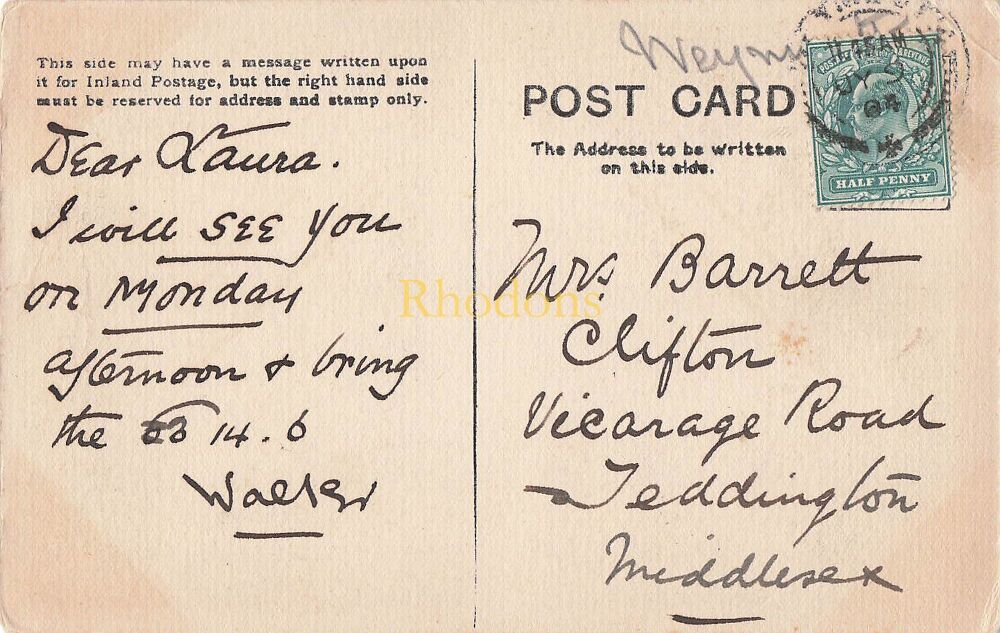 This side may have a message written upon
it for Inland Postage, but the right hand side
must be reserved for address and stamp only.
Dear Laura.
I will SEE you
on Monday
afternoon & bring
the 14.6
Walter
POST CARD
The Address to be written
on this side.
HALF PENNY
04
Mrs Barrett
Clifton
Vicarage Road
Teddington
Middlesex
Rhodons